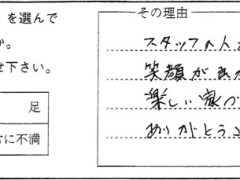 を選んで
か。
せ下さい。
足
に不満
その理由
スタッフの人
笑顔が
楽しい
ありがとう